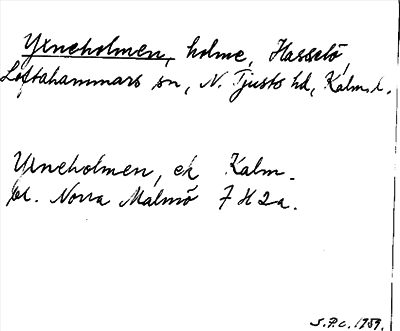 Yxneholmen, holme, Hasselö,
Loftahammars sn, N. Tjusts hd, Kalm. l.
Yxneholmen, ek Kalm.
bl. Norra Malmö 7 H 2 a.
S.P.C. 1959.